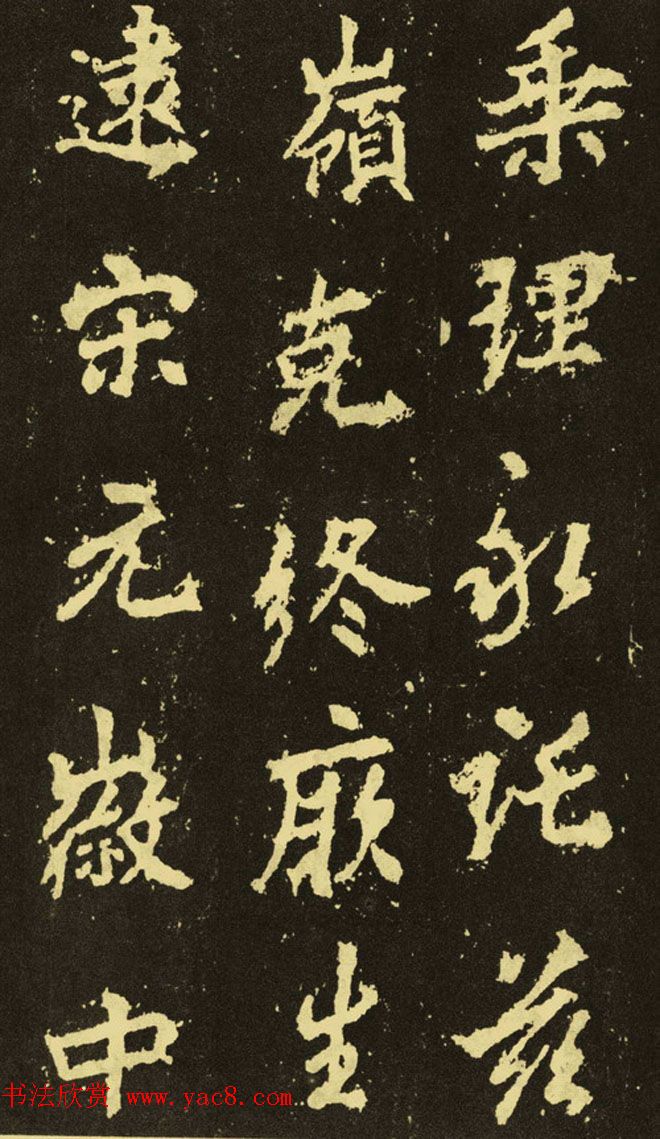 乗理永託兹
嶺克終厥生
逮宋元徽中
书法欣赏 www.yac8.com